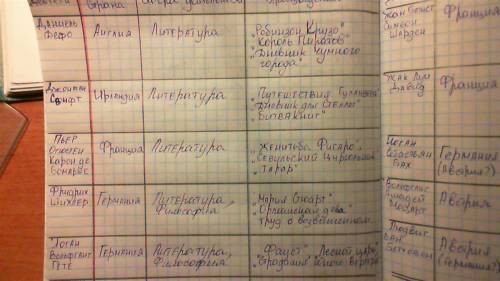 Страна
Даниель
Дефо
Англия
Литература
"Робинзон Крузо"
"Король Пиратов"
"Дневник Чумного
города"
Джонатан
Свифт
Ирландия
Литература
"Путешествия Гулливера"
"Дневник для Стеллы"
"Битва книг"
Пьер
Огюстен
Карон де
Бомарше
Франция
Литература
"Женитьба Фигаро",
"Севильский Цирюльник"
"Тарар"
Фридрих
Шиллер
Германия
Литература,
Философия
"Мария Стюарт"
"Орлеанская дева"
Труд о возвышенном
Иоганн
Вольфганг
Гёте
Германия
Литература,
Философия
"Фауст" "Лесной царь"
"Страдания юного Вертера"
Жан Батист
Симеон
Шарден
Франция
Жак Луи
Давид
Франция
Иоган
Себастьян
Бах
Германия
(Австрия?)
Вольфганг
Амадей
Моцарт
Австрия
Людвиг
ван
Бетховен
Австрия
(Германия?)